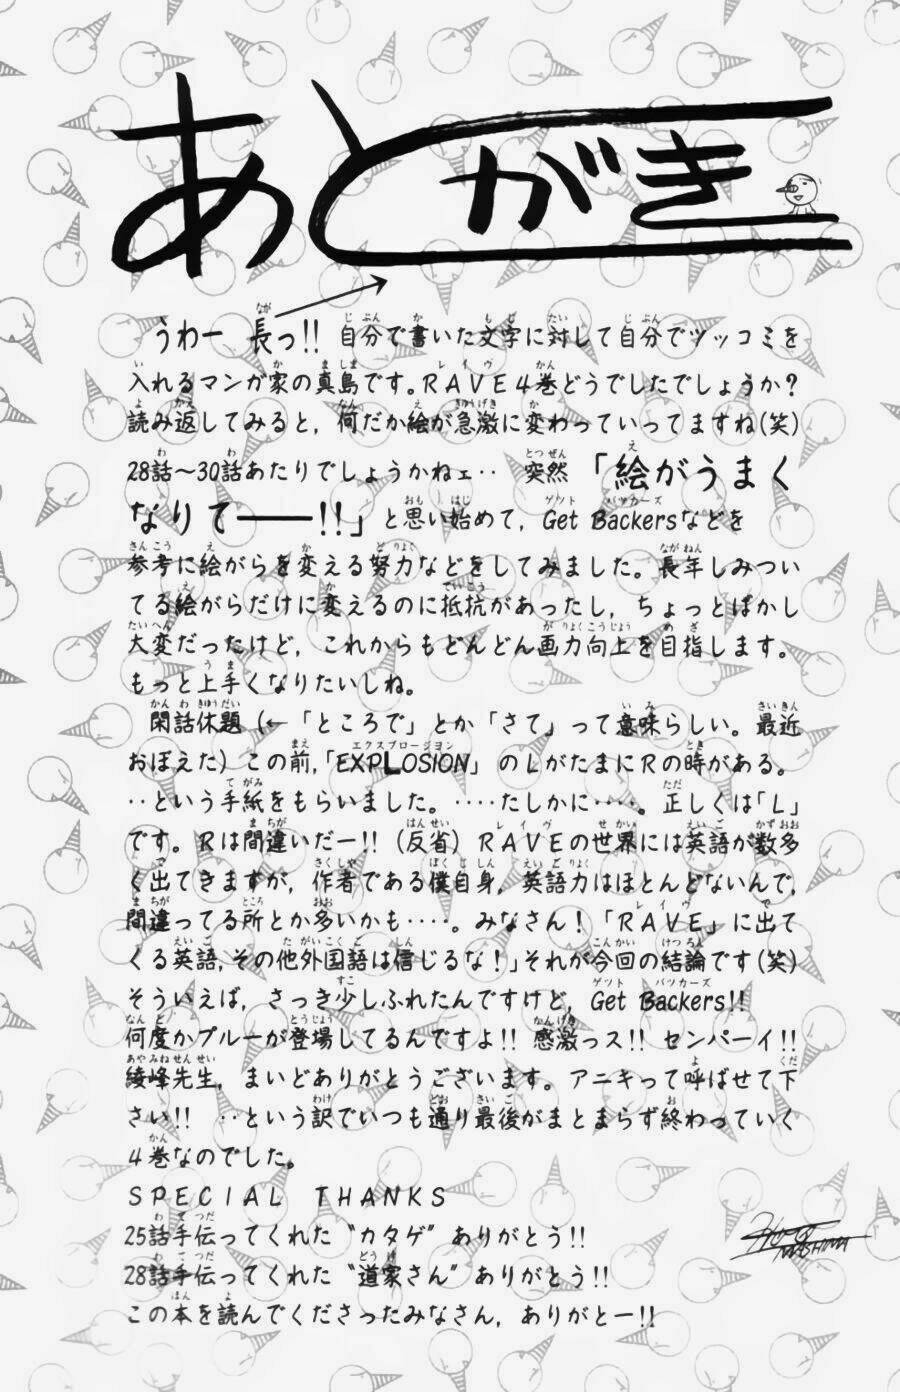 あとがき
うわー 長っ!! 自分で書いた文字に対して自分でツッコミを
入れるマンガ家の真島です。RAVE4巻どうでしたでしょうか?
読み返してみると, 何だか絵が急激に変わっていってますね(笑)
28話〜30話あたりでしょうかねェ‥ 突然「絵がうまく
なりてーーー!!」と思い始めて, Get Backersなどを
参考に絵がらを変える努力などをしてみました。長年しみつい
てる絵がらだけに変えるのに抵抗があったし, ちょっとばかし
大変だったけど, これからもどんどん画力向上を目指します。
もっと上手くなりたいしね。
閑話休題 (←「ところで」とか「さて」って意味らしい。最近
おぼえた) この前,「EXPLOSION」のLがたまにRの時がある。
‥という手紙をもらいました。‥‥たしかに‥‥。正しくは「L」
です。Rは間違いだー!! (反省) RAVEの世界には英語が数多
く出てきますが, 作者である僕自身, 英語力はほとんどないんで,
間違ってる所とか多いかも‥‥。みなさん!「RAVE」に出て
くる英語, その他外国語は信じるな!」それが今回の結論です(笑)
そういえば, さっき少しふれたんですけど, Get Backers!!
何度かプルーが登場してるんですよ!! 感激っス!! センパーイ!!
綾峰先生, まいどありがとうございます。アニキって呼ばせて下
さい!! ‥という訳でいつも通り最後がまとまらず終わっていく
4巻なのでした。
SPECIAL THANKS
25話手伝ってくれた "カタゲ" ありがとう!!
28話手伝ってくれた "道家さん" ありがとう!!
この本を読んでくださったみなさん, ありがとー!!
HIRO MASHIMA